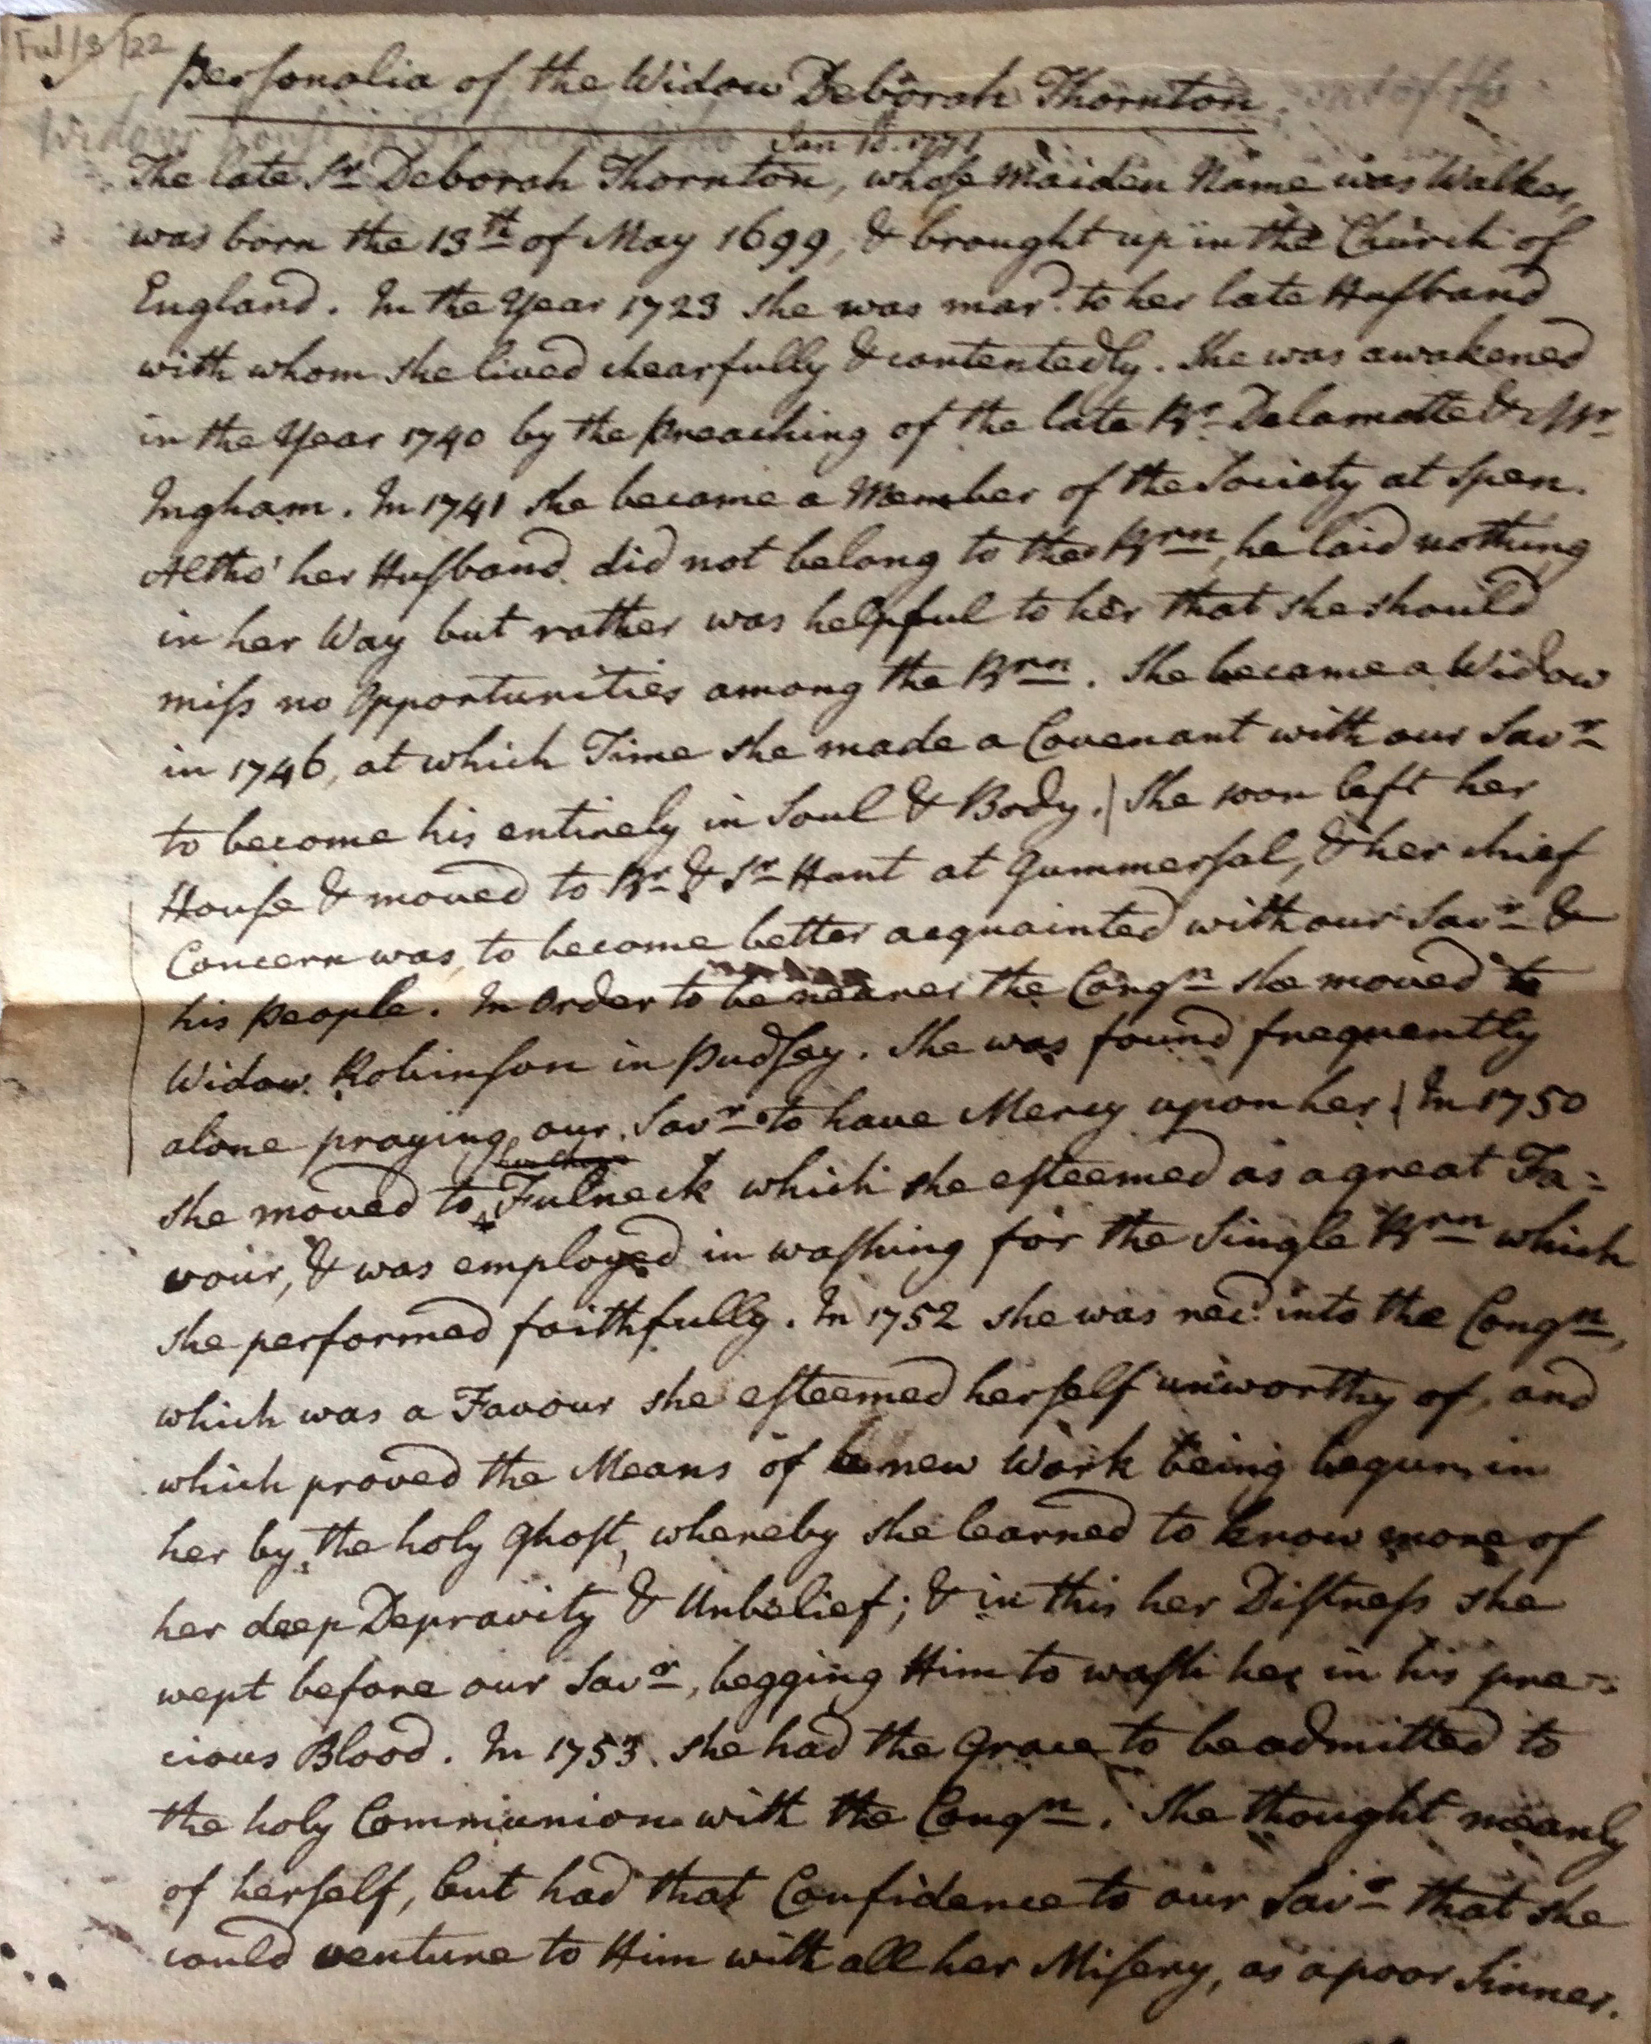 Ful/3/22
Personalia of the Widow Deborah Thornton, and of the
Widows House in Fulneck, who Jan 18. 1771
The late Sr. Deborah Thornton, whose Maiden Name was Walker,
was born the 13th of May 1699, & brought up in the Church of
England. In the Year 1723 she was mard. to her late Husband
with whom she lived chearfully & contentedly. She was awakened
in the Year 1740 by the Preaching of the late Br. Delamotte & Mr.
Ingham. In 1741 she became a Member of the Society at Spen.
Altho' her Husband did not belong to the Brn, he laid nothing
in her Way but rather was helpful to her that she should
miss no Opportunities among the Brn. She became a Widow
in 1746, at which Time she made a Covenant with our Savr
to become his entirely in Soul & Body. | She soon left her
House & moved to Br & Sr Hant at Gummersal, & her chief
Concern was, to become better acquainted with our Savr &
his People. In Order to be nearer the Congn she moved to
Widow Robinson in Pudsey. She was found frequently
alone praying our Savr to have Mercy upon her. | In 1750
she moved to Fulneck which she esteemed as a great Fa=
vour, & was employed in washing for the Single Brn which
she performed faithfully. In 1752 she was recd. into the Congn,
which was a Favour she esteemed herself unworthy of, and
which proved the Means of a new Work being begun in
her by the holy Ghost, whereby she learned to know more of
her deep Depravity & Unbelief; & in this her Distress she
wept before our Savr, begging Him to wash her in his pre=
cious Blood. In 1753 she had the Grace to be admitted to
the holy Communion with the Congn. She thought meanly
of herself, but had that Confidence to our Savr that she
could venture to Him with all her Misery, as a poor Sinner.